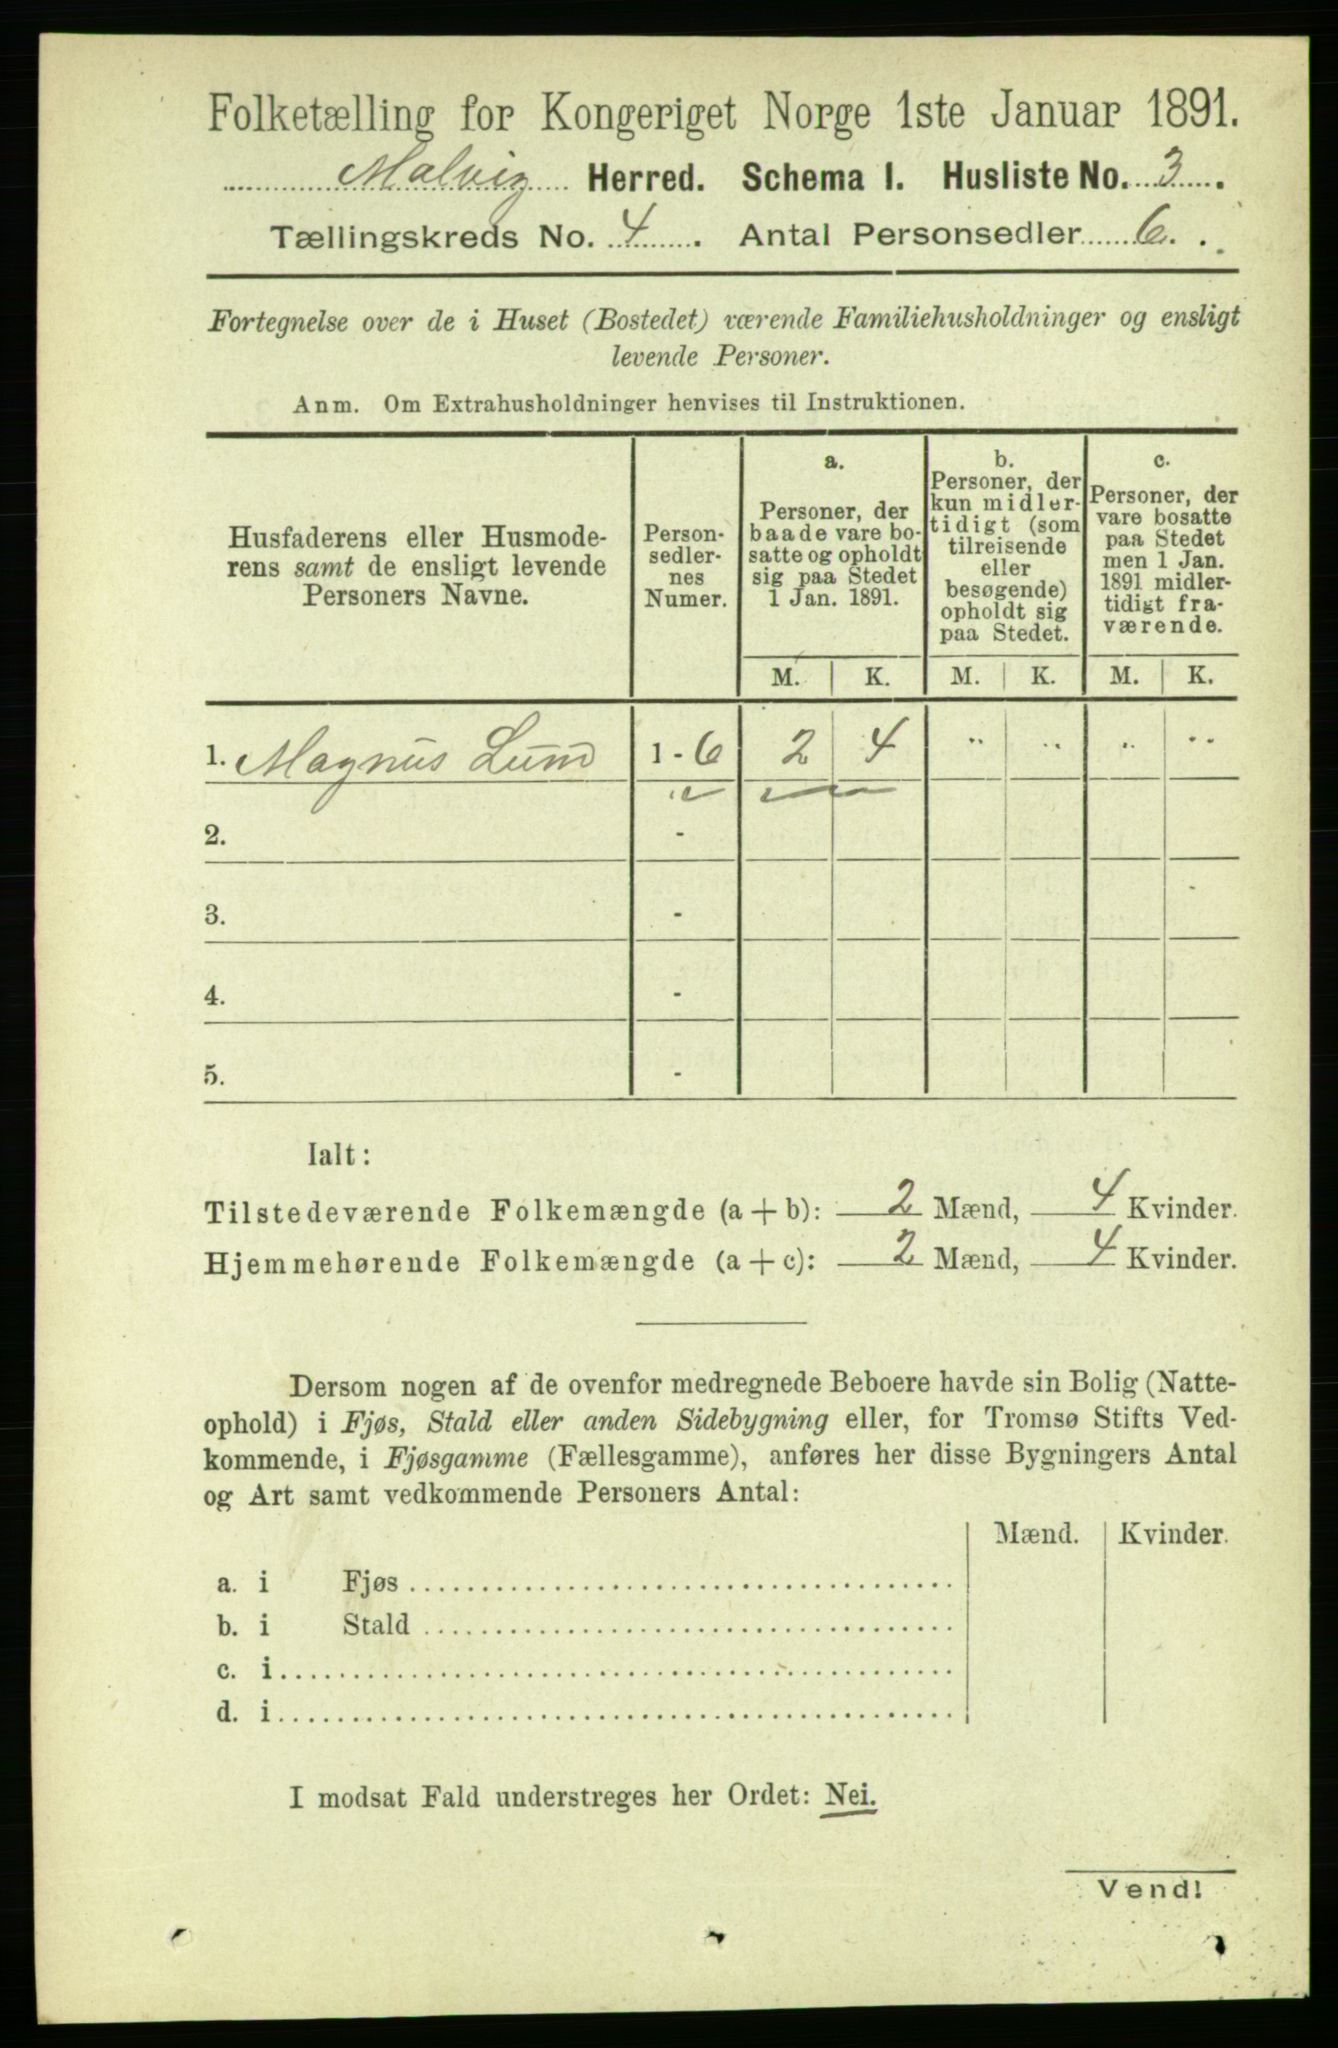 Folketælling for Kongeriget Norge 1ste Januar 1891.
Malvig Herred. Schema I. Husliste No. 3.
Tællingskreds No. 4. Antal Personsedler 6.
Fortegnelse over de i Huset (Bostedet) værende Familiehusholdninger og ensligt
levende Personer.
Anm. Om Extrahusholdninger henvises til Instruktionen.
Husfaderens eller Husmode-
rens samt de ensligt levende
Personers Navne.
Person-
sedler-
nes
Numer.
a.
Personer, der
baade vare bo-
satte og opholdt
sig paa Stedet
1 Jan. 1891.
b.
Personer, der
kun midler-
tidigt (som
tilreisende
eller
besøgende)
opholdt sig
paa Stedet.
c.
Personer, der
vare bosatte
paa Stedet
men 1 Jan.
1891 midler-
tidigt fra-
værende.
M. K. M. K. M. K.
1. Magnus Lund 1 - 6 2 4 " " " "
2. -
3. -
4. -
5. -
Ialt:
Tilstedeværende Folkemængde (a + b): 2 Mænd, 4 Kvinder.
Hjemmehørende Folkemængde (a + c): 2 Mænd, 4 Kvinder.
Dersom nogen af de ovenfor medregnede Beboere havde sin Bolig (Natte-
ophold) i Fjøs, Stald eller anden Sidebygning eller, for Tromsø Stifts Ved-
kommende, i Fjøsgamme (Fællesgamme), anføres her disse Bygningers Antal
og Art samt vedkommende Personers Antal:
Mænd. Kvinder.
a. i Fjøs
b. i Stald
c. i
d. i
I modsat Fald understreges her Ordet: Nei.
Vend!